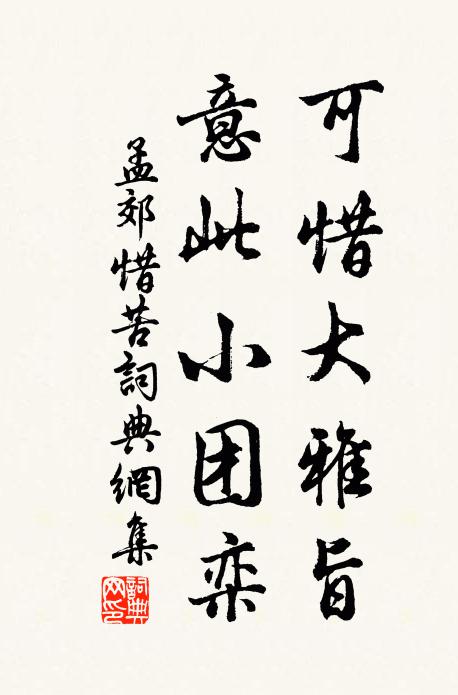 可惜大雅旨
意此小团奕
孟郊惜苦詞典網集
詞典网印